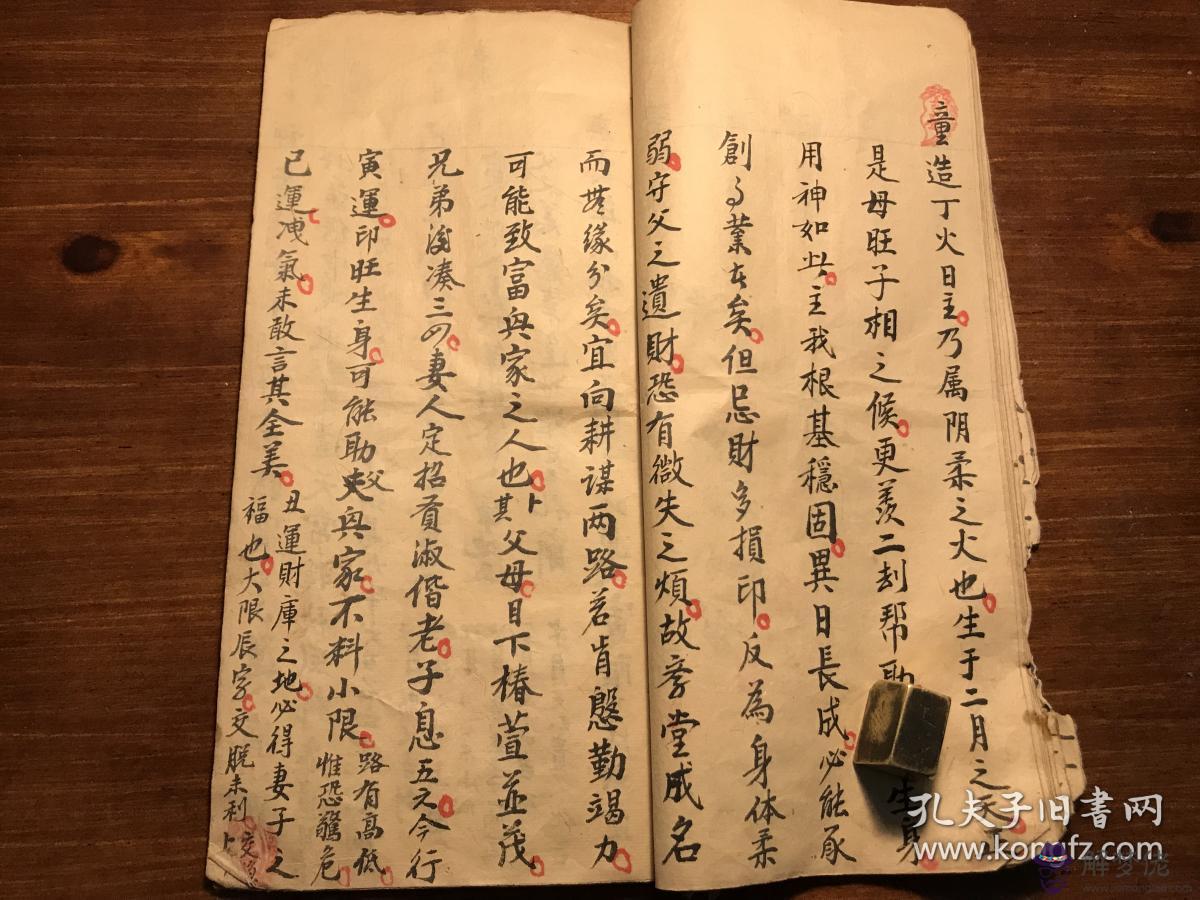 童造丁火日主乃属阴柔之火也生于二月之
是母旺子相之候更羨二刦帮助生身
用神如此主我根基穩固異日長成必能承
創業矣但忌財多損印反為身体柔
弱守父之遺財恐有微失之煩故孝堂成名
而無缘分矣宜向耕謀两路若肯慇勤竭力
可能致富與家之人也卜其父母目下椿萱並茂
兄弟凑三四妻人定招賢淑偕老子息五元今行
寅運印旺生身可能助父與家不料小限路有高低惟恐驚危
已運洩氣未敢言其全美丑運財庫之地必得妻子之福也大限辰字交脱未利卜
孔夫子旧书网
www.kongfz.com
解梦佬
www.jiemenglao.com